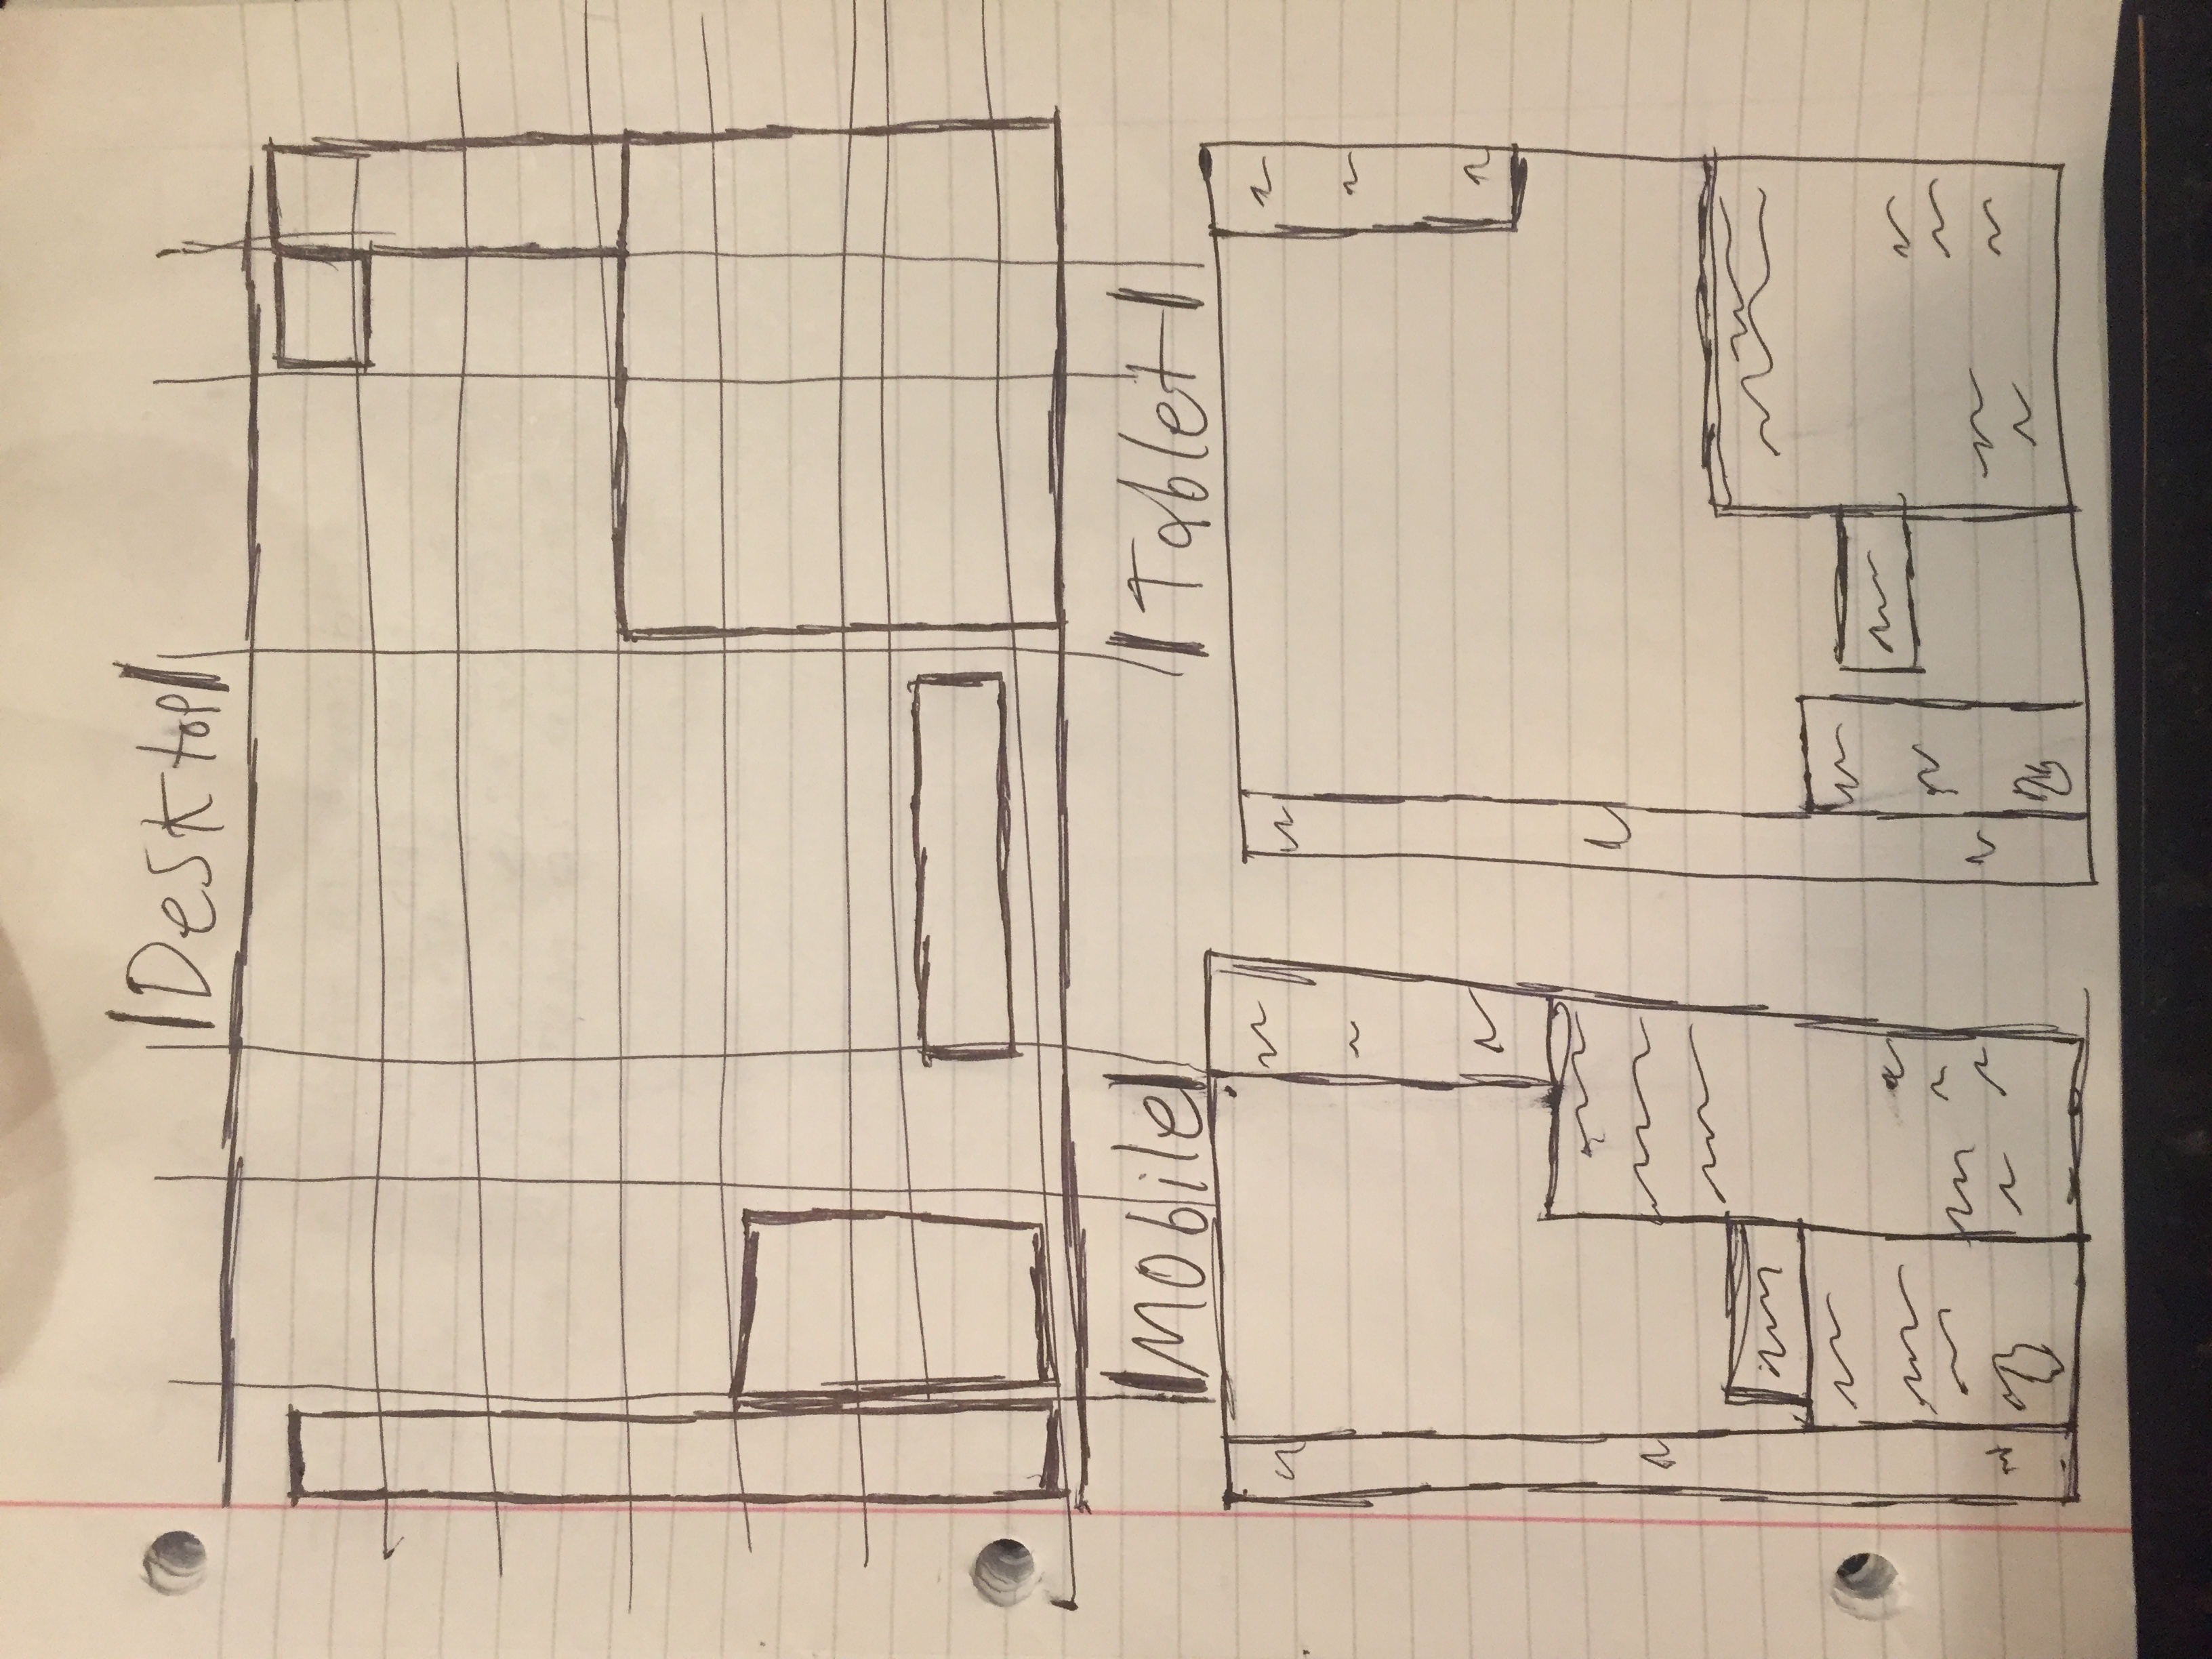 Desktop
Mobile
Tablet